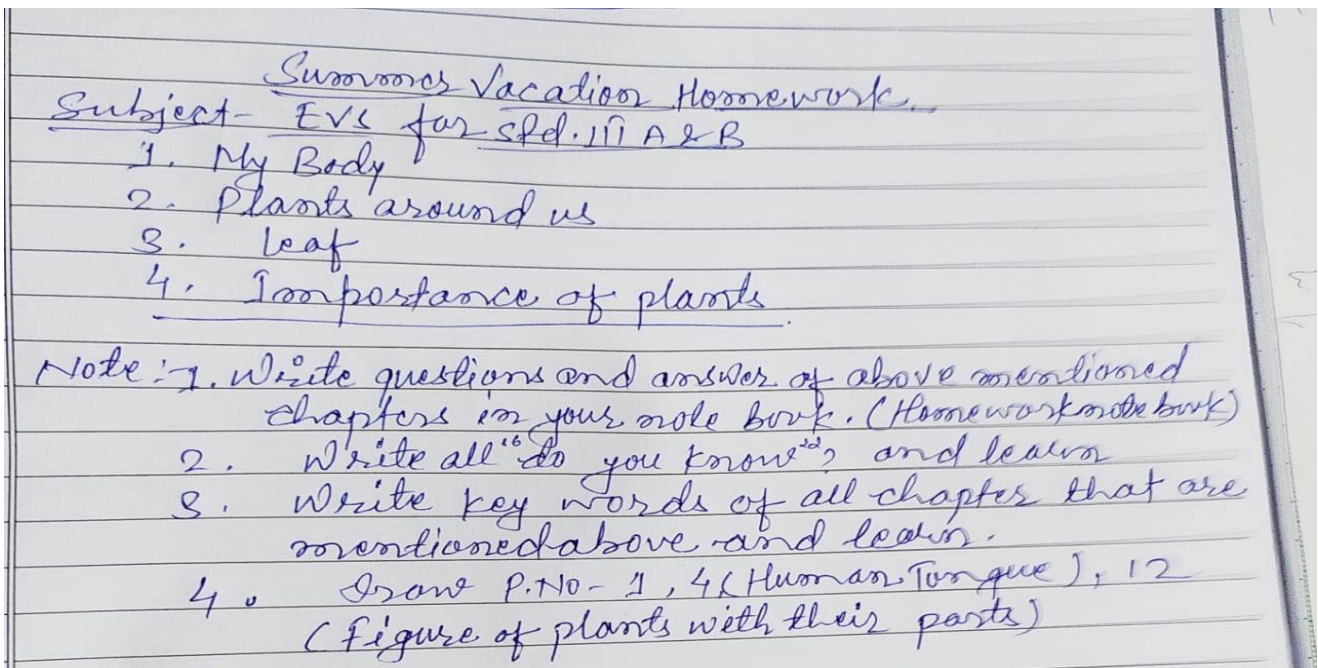 Summer Vacation Homework.
Subject- EVS for Std. III A & B
1. My Body
2. Plants around us
3. leaf
4. Importance of plants.
Note:-1. Write questions and answer of above mentioned
chapters in your note book. (Homework note book)
2. Write all "do you know"? and learn
3. Write key words of all chapter that are
mentioned above and learn.
4. Draw P.No- 1, 4 (Human Tongue), 12
(Figure of plants with their parts)